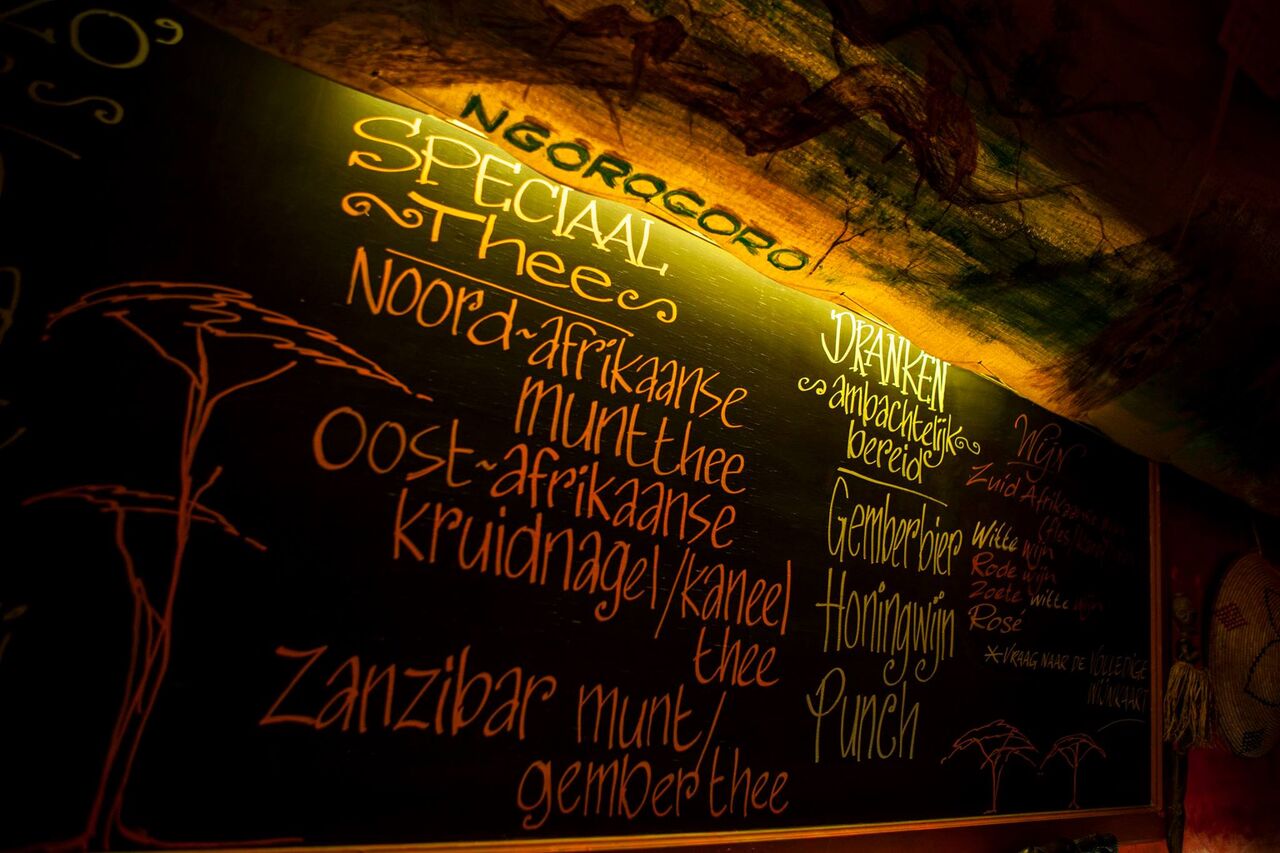 NGOROGORO
SPECIAAL
Thee
Noord~afrikaanse
muntthee
Oost~afrikaanse
kruidnagel/kaneel
thee
Zanzibar munt/
gemberthee
DRANKEN
ambachtelijk
bereid
Gemberbier
Honingwijn
Punch
Wijn
Zuid Afrikaanse
Witte wijn
Rode wijn
Zoete witte wijn
Rosé
*VRAAG NAAR DE VOLLEDIGE
WIJNKAART